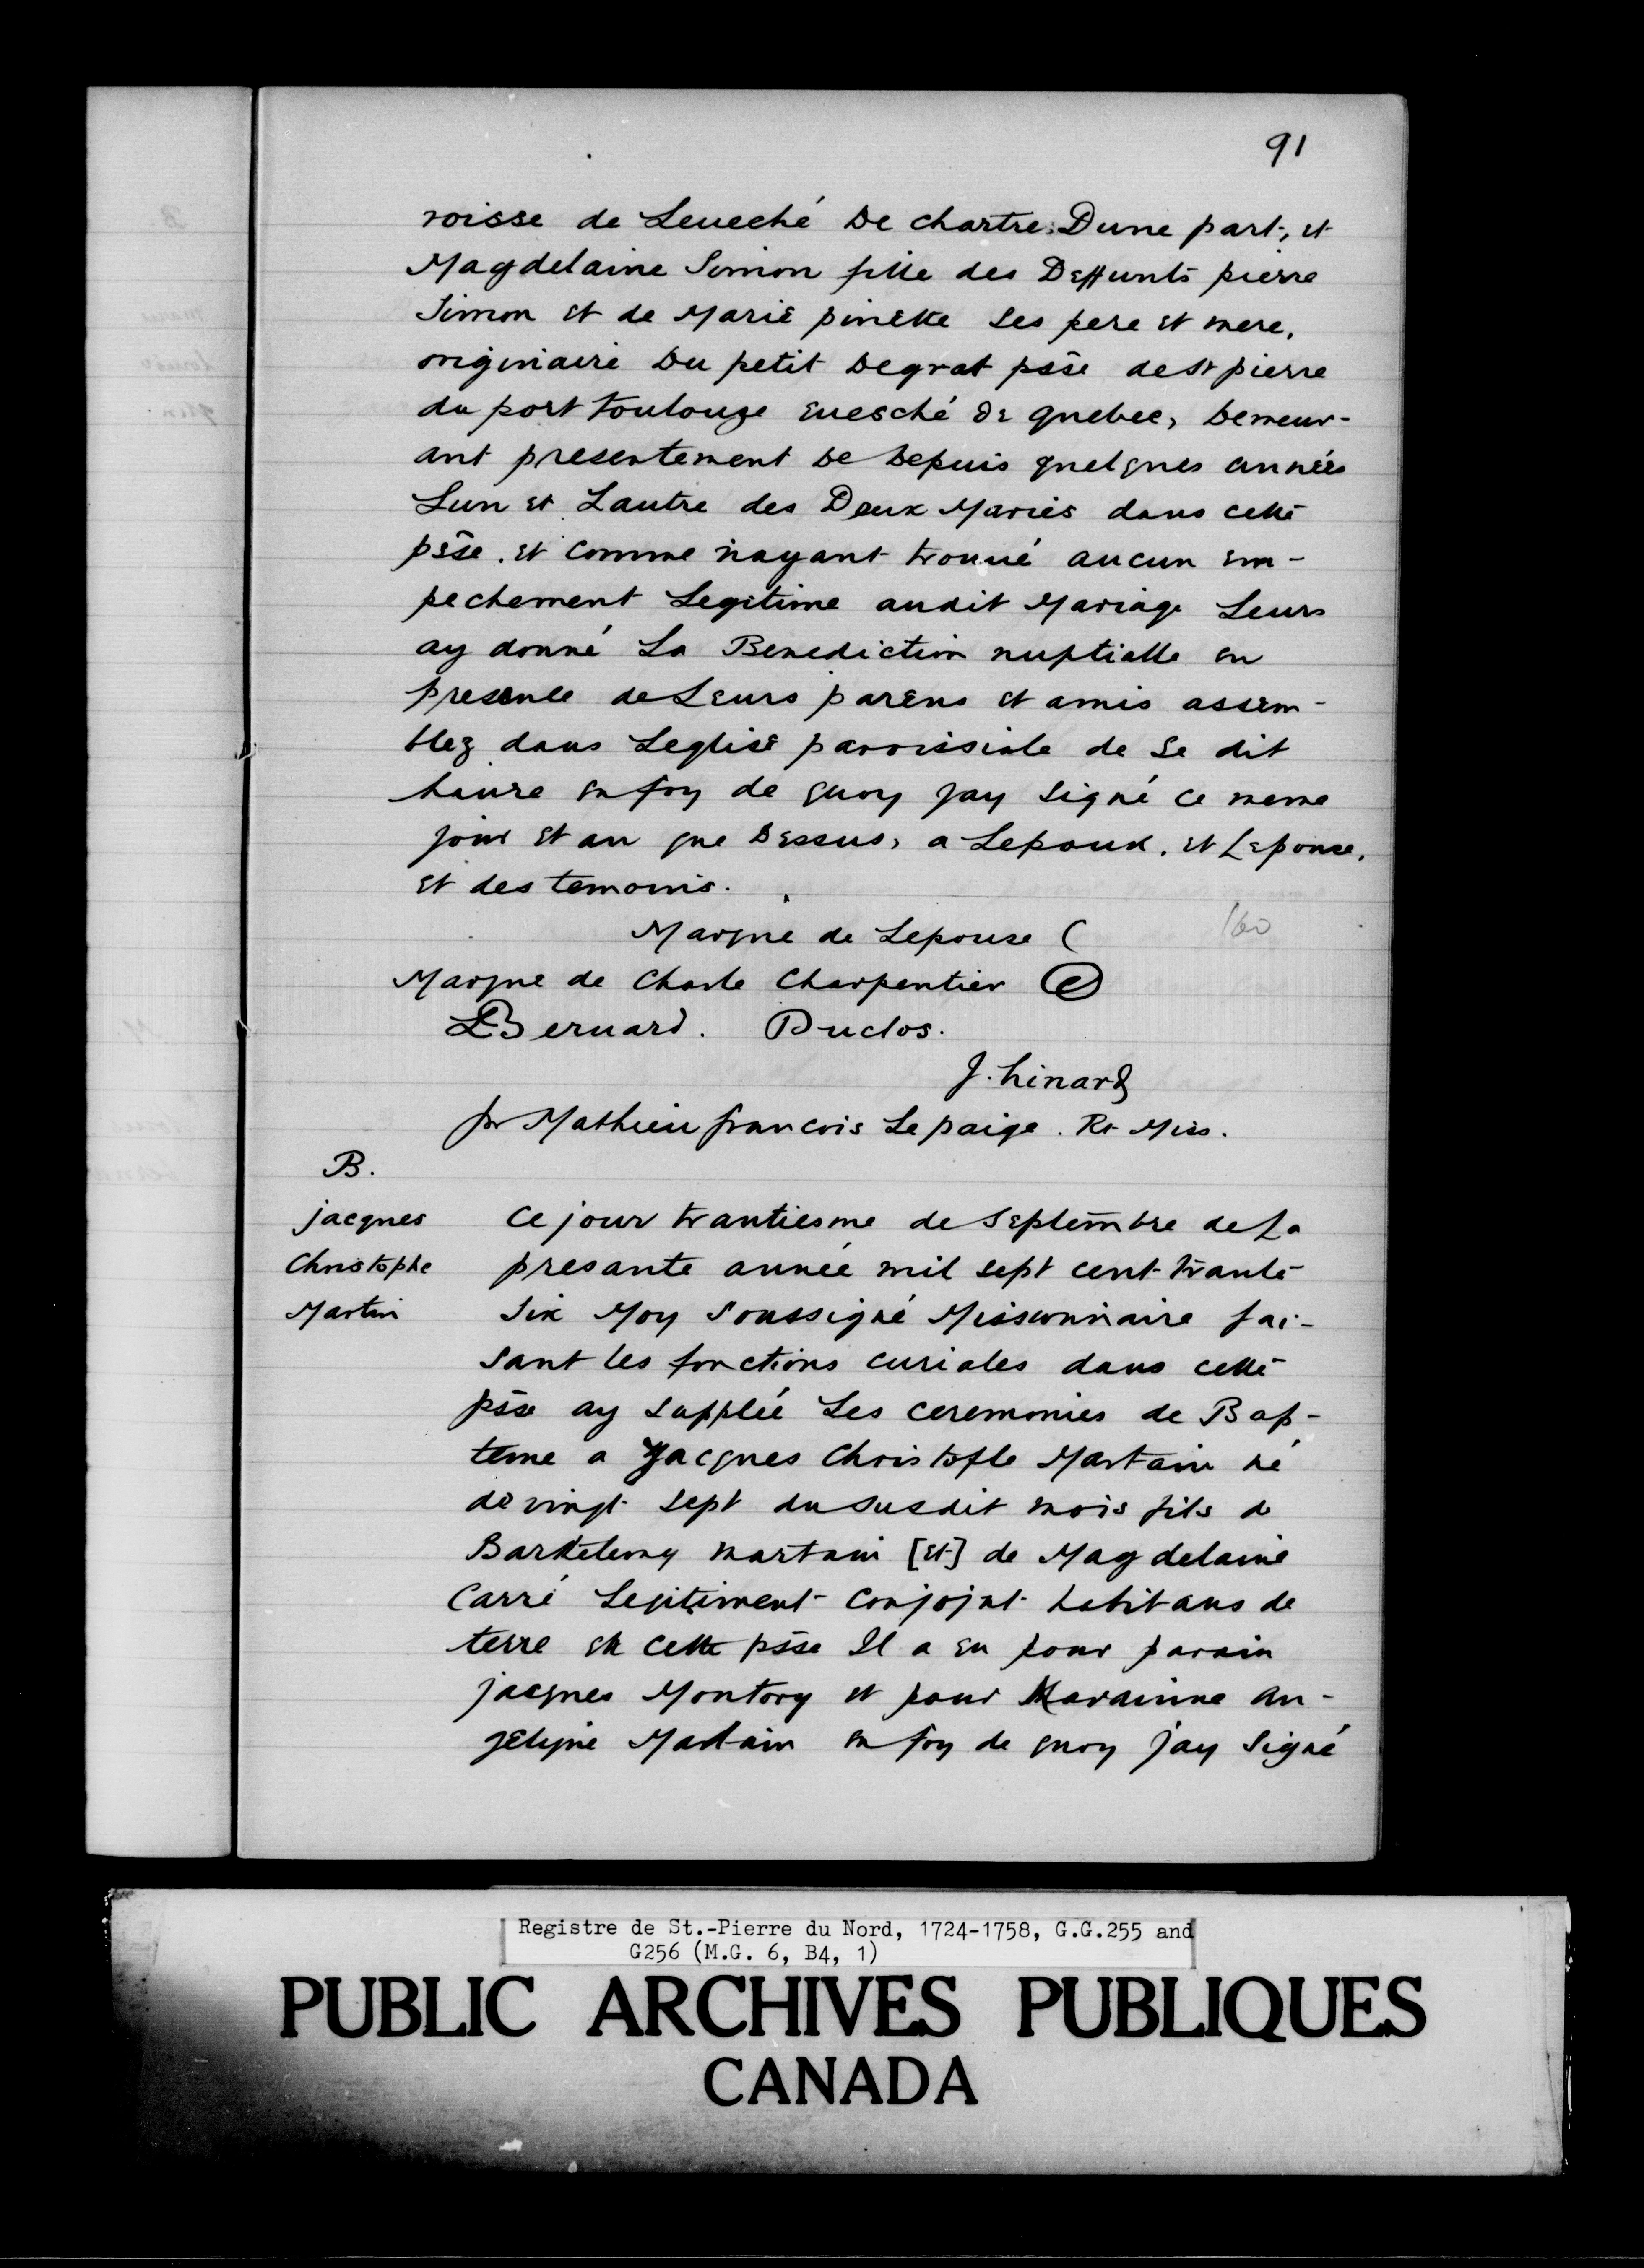 91
roisse de Leueché De chartre. Dune part, et
Magdelaine Simon fille des Deffunts pierre
Simon et de Marie pinette Ses pere et mere,
originaire Du petit Degrat psse de St pierre
du port toulouze euesché De quebec, Demeur-
ant presentement De Depuis quelques années
Lun et Lautre des Deux Mariés dans cette
psse. et comme nayant trouué aucun em-
pechement Legitime audit Mariage Leurs
ay donné La Benediction nuptialle en
presence de Leurs parens et amis assem-
blez dans Leglise parroissiale de Se dit
haure en foy de quoy jay signé ce meme
jour et an que Dessus, a Lepoux. et Lepouse,
et des temoins.
Marque de Lepouse (
160
Marque de Charle Charpentier
LBernard. Duclos.
J. hinard
fr Mathieu francois Le paige. Rt Miss.
B.
jacques
Christophe
Martin
Ce jour trantiesme de Septembre de La
presante année mil sept cent trante
Six Moy Soussigné Missionnaire fai-
sant les fonctions curiales dans cette
psse ay supplée Les ceremonies de Bap-
teme a Jacques Christofle Martain né
de vingt sept du susdit mois fils de
Barthelemy martain [et] de Magdelaine
Carré Legitiment conjojnt habitans de
terre en cette psse Il a eu pour parain
jacques Montory et pour Marainne an-
gelique Martain en foy de quoy jay signé
Registre de St.-Pierre du Nord, 1724-1758, G.G.255 and
G256 (M.G. 6, B4, 1)
PUBLIC ARCHIVES PUBLIQUES
CANADA